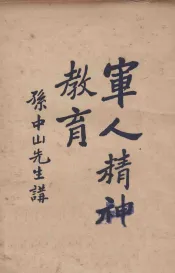 軍人精神
教育
孫中山先生講